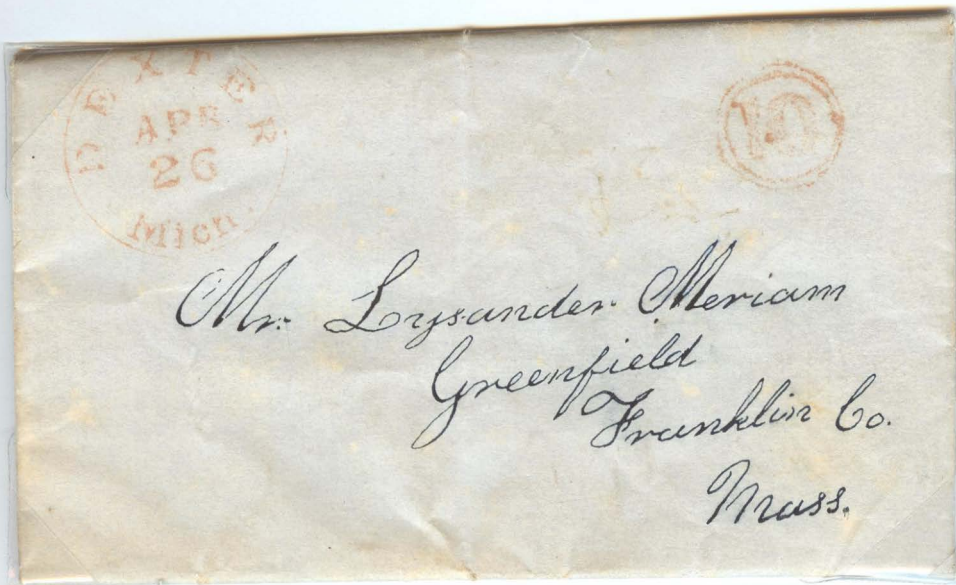 DEXTER
APR
26
Mich.
10
Mr. Lysander Meriam
Greenfield
Franklin Co.
Mass.